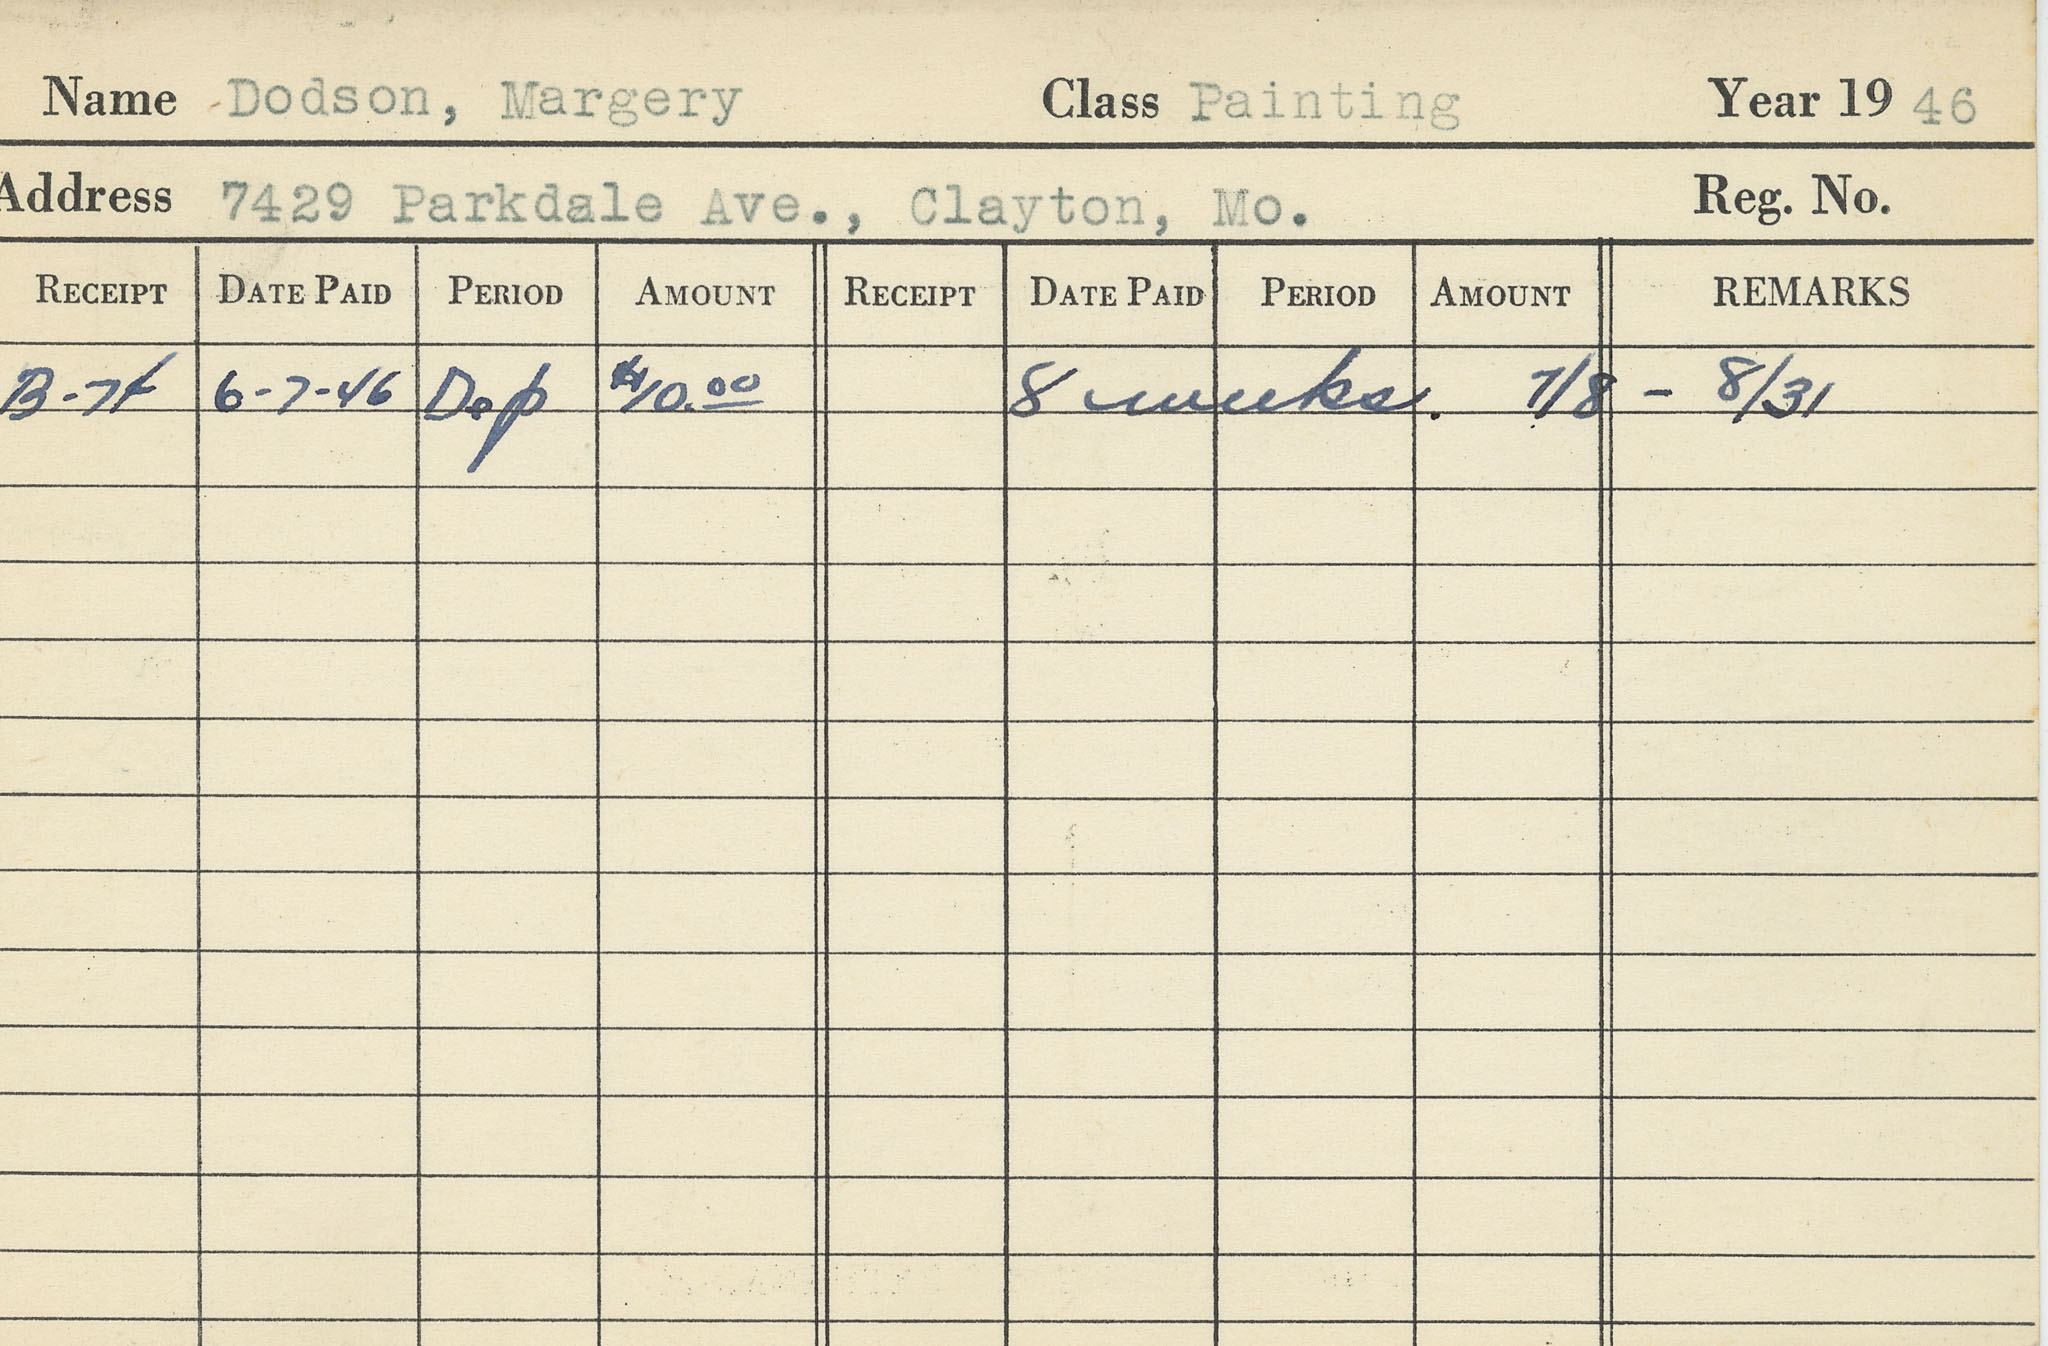 Name Dodson, Margery Class Painting Year 19 46
Address 7429 Parkdale Ave., Clayton, Mo. Reg. No.
RECEIPT DATE PAID PERIOD AMOUNT RECEIPT DATE PAID PERIOD AMOUNT REMARKS
B-74 6-7-46 Dep $10.00 8 weeks. 7/8 - 8/31